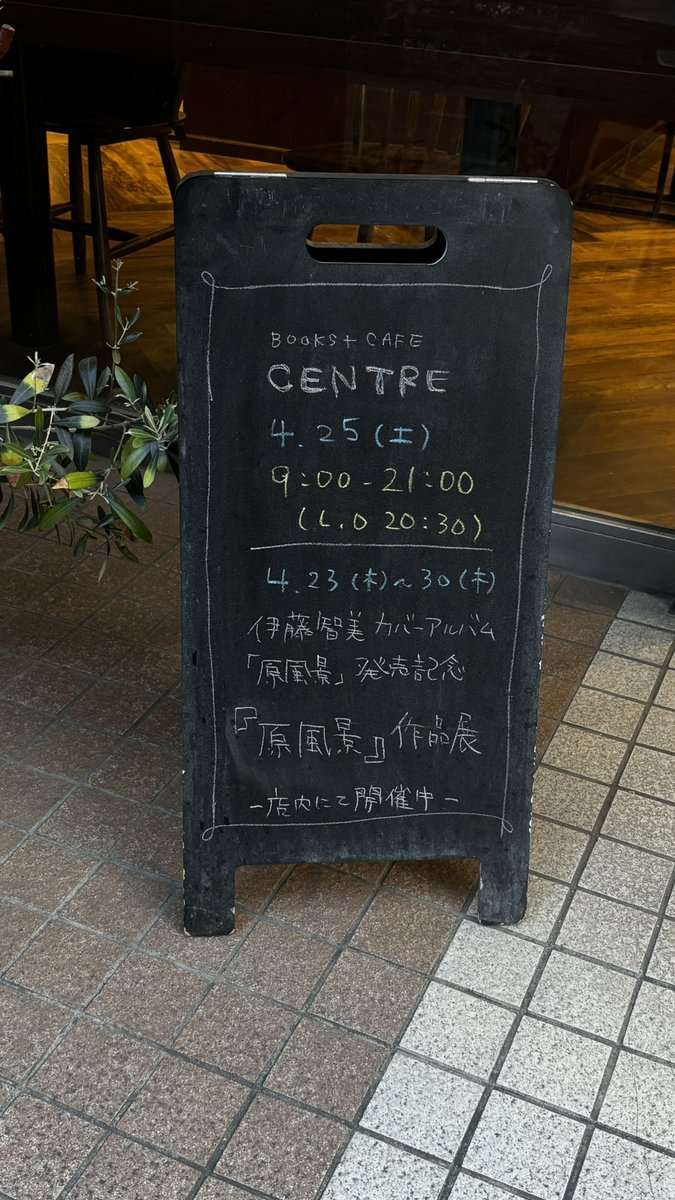 BOOKS+ CAFE
CENTRE
4.25(土)
9:00-21:00
(L.O 20:30)
4.23(木)~30(木)
伊藤智美 カバーアルバム
「原風景」発売記念
『原風景』作品展
-店内にて開催中-